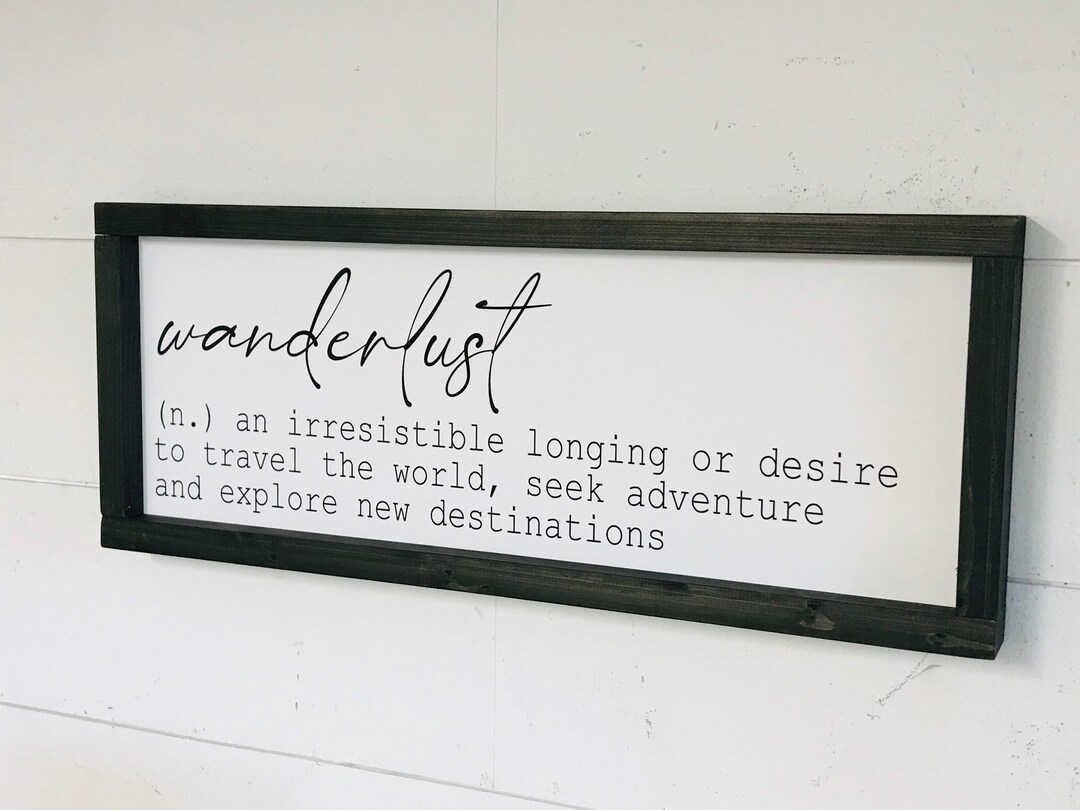 wanderlust
(n.) an irresistible longing or desire
to travel the world, seek adventure
and explore new destinations